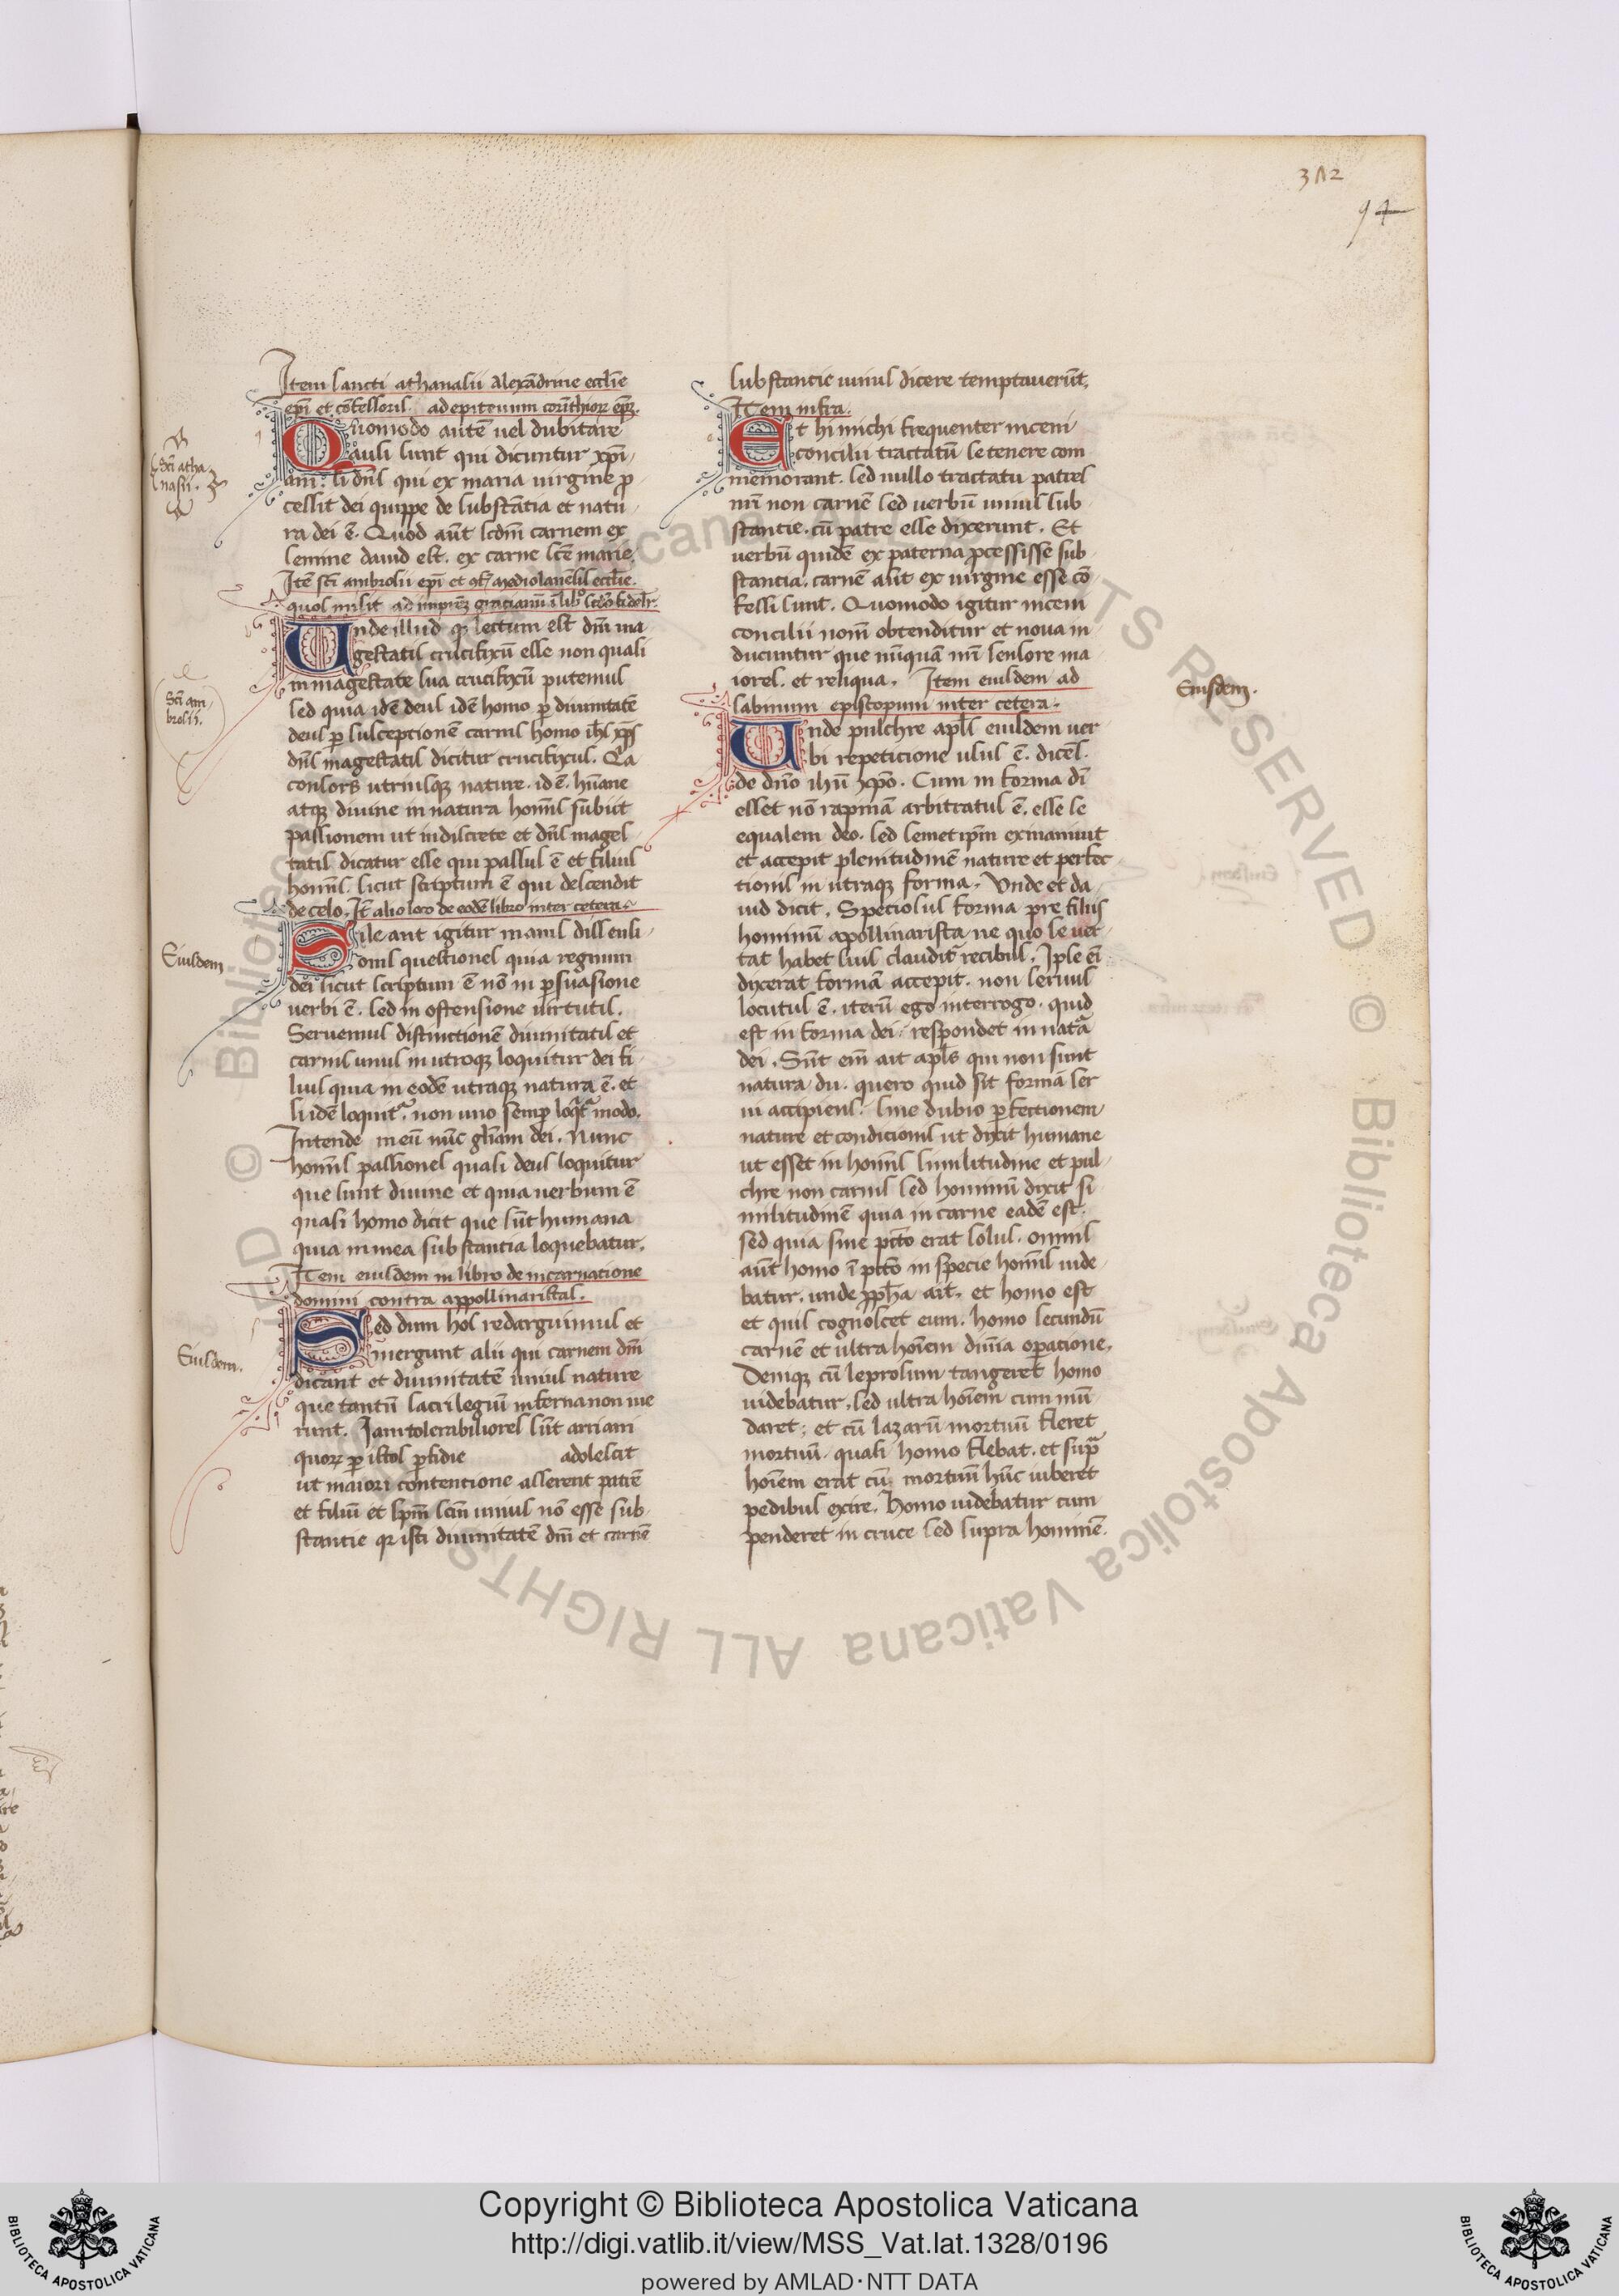 312
94
Item sancti athanasii alexādrine eccl̄ie
ep̄i et cōfessoris. ad epitetum corīthioꝝ ep̄m.
Quomodo autē uel dubitare
ausi sunt qui dicuntur xp̄i
ani. si dn̄s qui ex maria uirgine ꝓ
cessit dei quippe de substātia et natu
ra dei ē. Quod aūt scdm̄ carnem ex
semine dauid est. ex carne scē marie.
Itē sc̄i ambrosii ep̄i et ꝯf. mediolanēsis eccl̄ie.
quos misit ad imꝑeꝫ gracianū ī libº scdō fidei.
Unde illud qꝫ lectum est dn̄m ma
gestatis crucifixū esse non quasi
in magestate sua crucifixū putemus
sed quia idē deus idē homo ꝑ diuinitatē
deus ꝑ susceptionē carnis homo ih̄s xp̄s
dn̄s magestatis dicitur crucifixus. Qa
consors utriusqꝫ nature. id ē. hūane
atqꝫ diuine in natura homīs subiit
passionem ut indiscrete et dn̄s mages
tatis dicatur esse qui passus ē et filius
homīs. sicut scriptum ē qui descendit
de celo. It̄ alio loco de eodē libro inter cetera.
Sileant igitur inanis dissensi
onis questiones quia regnum
dei sicut scriptum ē nō in ꝑsuasione
uerbi ē. sed in ostensione uirtutis.
Seruemus distinctionē diuinitatis et
carnis unus in utroqꝫ loquitur dei fi
lius quia in eodē utraqꝫ natura ē. et
si idē loquit᷑. non uno semꝑ loqt᷑ modo.
Intende in eū nūc gl̄iam dei. Nunc
homīs passiones quasi deus loquitur
que sunt diuine et quia uerbum ē
quasi homo dicit que sūt humana
quia in mea substantia loquebatur.
Item eiusdem in libro de incarnacione
domini contra appollinaristas.
Sed dum hos redarguimus et
mergunt alii qui carnem dn̄i
dicant et diuinitatē unius nature
que tantū sacrilegiū inferna non uie
runt. Iam tolerabiliores sūt arriani
quoꝝ ꝑ istos ꝑfidie adolescit
ut maiori contentione asserent patrē
et filiū et sp̄m sc̄m unius nō esse sub
stantie qꝫ isti diuinitatē dn̄i et carnē
substantie unius dicere temptauerūt.
Item infra.
Et hi michi frequenter niceni
concilii tractatū se tenere com
memorant. sed nullo tractatu patres
nr̄i non carnē sed uerbū unius sub
stantie. cū patre esse dixerunt. Et
uerbū quidē ex paterna ꝓcessisse sub
stantia. carnē aūt ex uirgine esse cō
fessi sunt. Quomodo igitur niceni
concilii nom̄ obtenditur et noua in
ducuntur que nūquā nr̄i sensere ma
iores. et reliqua. Item eiusdem ad
sabinum episcopum inter cetera.
Unde pulchre apl̄s eiusdem uer
bi repeticione usus ē. dicēs.
de dn̄o ih̄u xp̄o. Cum in forma dī
esset nō rapinā arbitratus ē. esse se
equalem deo. sed semet ip̄m exinaniuit
et accepit plenitudinē nature et perfec
tionis in utraqꝫ forma. Unde et da
uid dicit. Speciosus forma pre filiis
hominū apollinarista ne quo se uer
tat habet suis claudit᷑ recibus. Ipse ei
dixerat formā accepit. non seruus
locutus ē. iterū ego interrogo. quid
est in forma dei. respondet in nat᷑a
dei. Sūt em̄ ait apl̄s qui non sunt
natura dii. quero quid sit formā ser
ui accipiens. sine dubio ꝑfectionem
nature et condicionis ut dixit humane
ut esset in homīs similitudine et pul
chre non carnis sed hominū dixit si
militudinē quia in carne eadē est.
sed quia sine pctō erat solus. omnis
aūt homo ī pctō in specie homīs uide
batur. unde ꝓph̄a ait. et homo est
et quis cognoscet eum. homo secundū
carnē et ultra hoīem diuīa oꝑacione.
Deniqꝫ cū leprosum tangeret homo
uidebatur. sed ultra hoīem cum mū
daret. et cū lazarū mortuū fleret
mortuū quasi homo flebat. et sup᷑
hoīem erat cū mortuū hūc iuberet
pedibus exire. Homo uidebatur cum
penderet in cruce sed supra hominē.
Sc̄i atha
nasii.
Sc̄i am
brosii.
Eiusdem
Eiusdem.
Eiusdem.
Copyright © Biblioteca Apostolica Vaticana
http://digi.vatlib.it/view/MSS_Vat.lat.1328/0196
powered by AMLAD·NTT DATA
BIBLIOTECA APOSTOLICA VATICANA
BIBLIOTECA APOSTOLICA VATICANA
© Biblioteca Apostolica Vaticana ALL RIGHTS RESERVED © Biblioteca Apostolica Vaticana ALL RIGHTS RESERVED